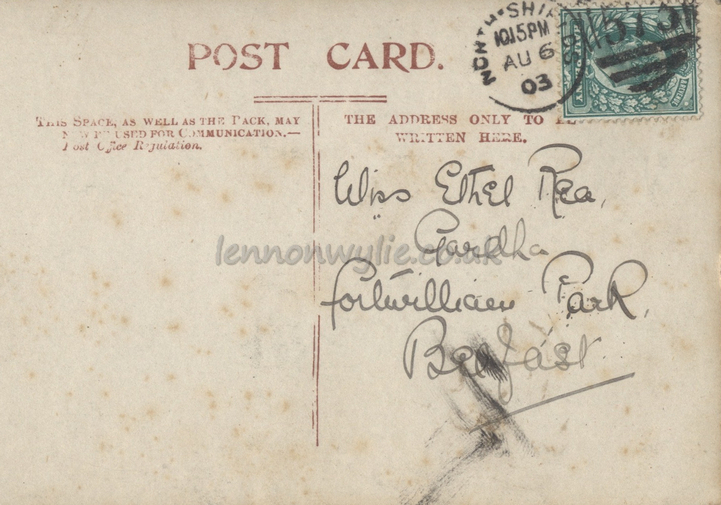 POST CARD.
THIS SPACE, AS WELL AS THE BACK, MAY
NOW BE USED FOR COMMUNICATION.—
Post Office Regulation.
THE ADDRESS ONLY TO BE
WRITTEN HERE.
NORTH SHI
10.15PM
AU 6
03
Miss Ethel Rea,
Gardha
Fortwilliam Park,
Belfast.
lennonwylie.co.uk